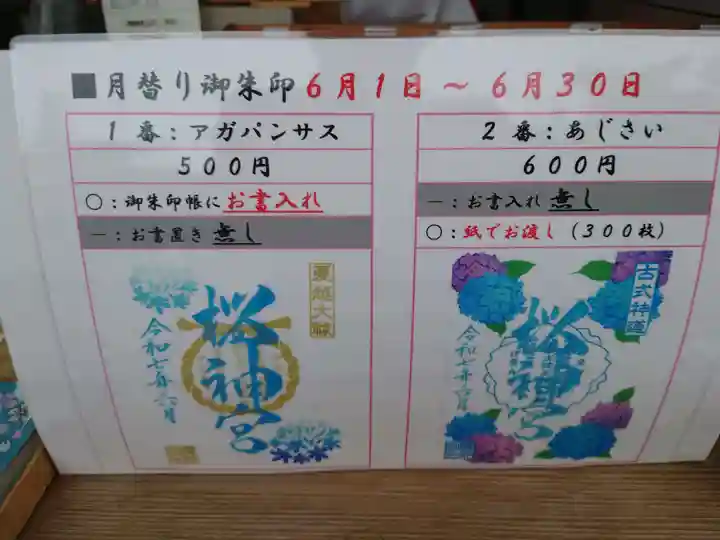 ■月替り御朱印6月1日～6月30日
1番：アガパンサス
500円
〇：御朱印帳にお書入れ
－：お書置き 無し
夏越大祓
桜神宮
令和七年六月
2番：あじさい
600円
－：お書入れ 無し
〇：紙でお渡し（300枚）
古式神道
桜神宮
令和七年六月